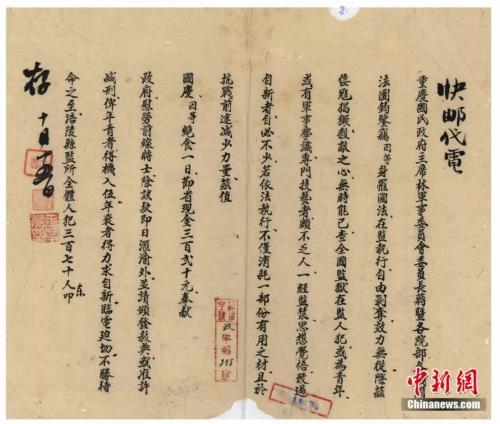 快郵代電
重慶國民政府主席林軍事委員會委員長蔣暨各院部
法團鈞鑒竊因等身罹國法在監執行自由剝奪效力無從際茲
倭寇猖獗殺敵之心無時能已查全國監獄在監人犯或為青年
或有軍事學識專門技藝者頗不乏人一經監禁思想覺悟改過
自新者自必不少若依法執行不僅消耗一部份有用之材且於
抗戰前途減少力量茲值
國慶因等絶食一日節省現金三百弍十元奉獻
政府慰勞前線將士除該款即日滙渝外並請頒發赦典或准許
減刑俾年青者得機入伍年衰者得力求自新臨電迫切不勝待
命之至涪陵縣監所全體人犯三百七十人叩
东
存
十月十
字第
2
中新網
Chinanews.com